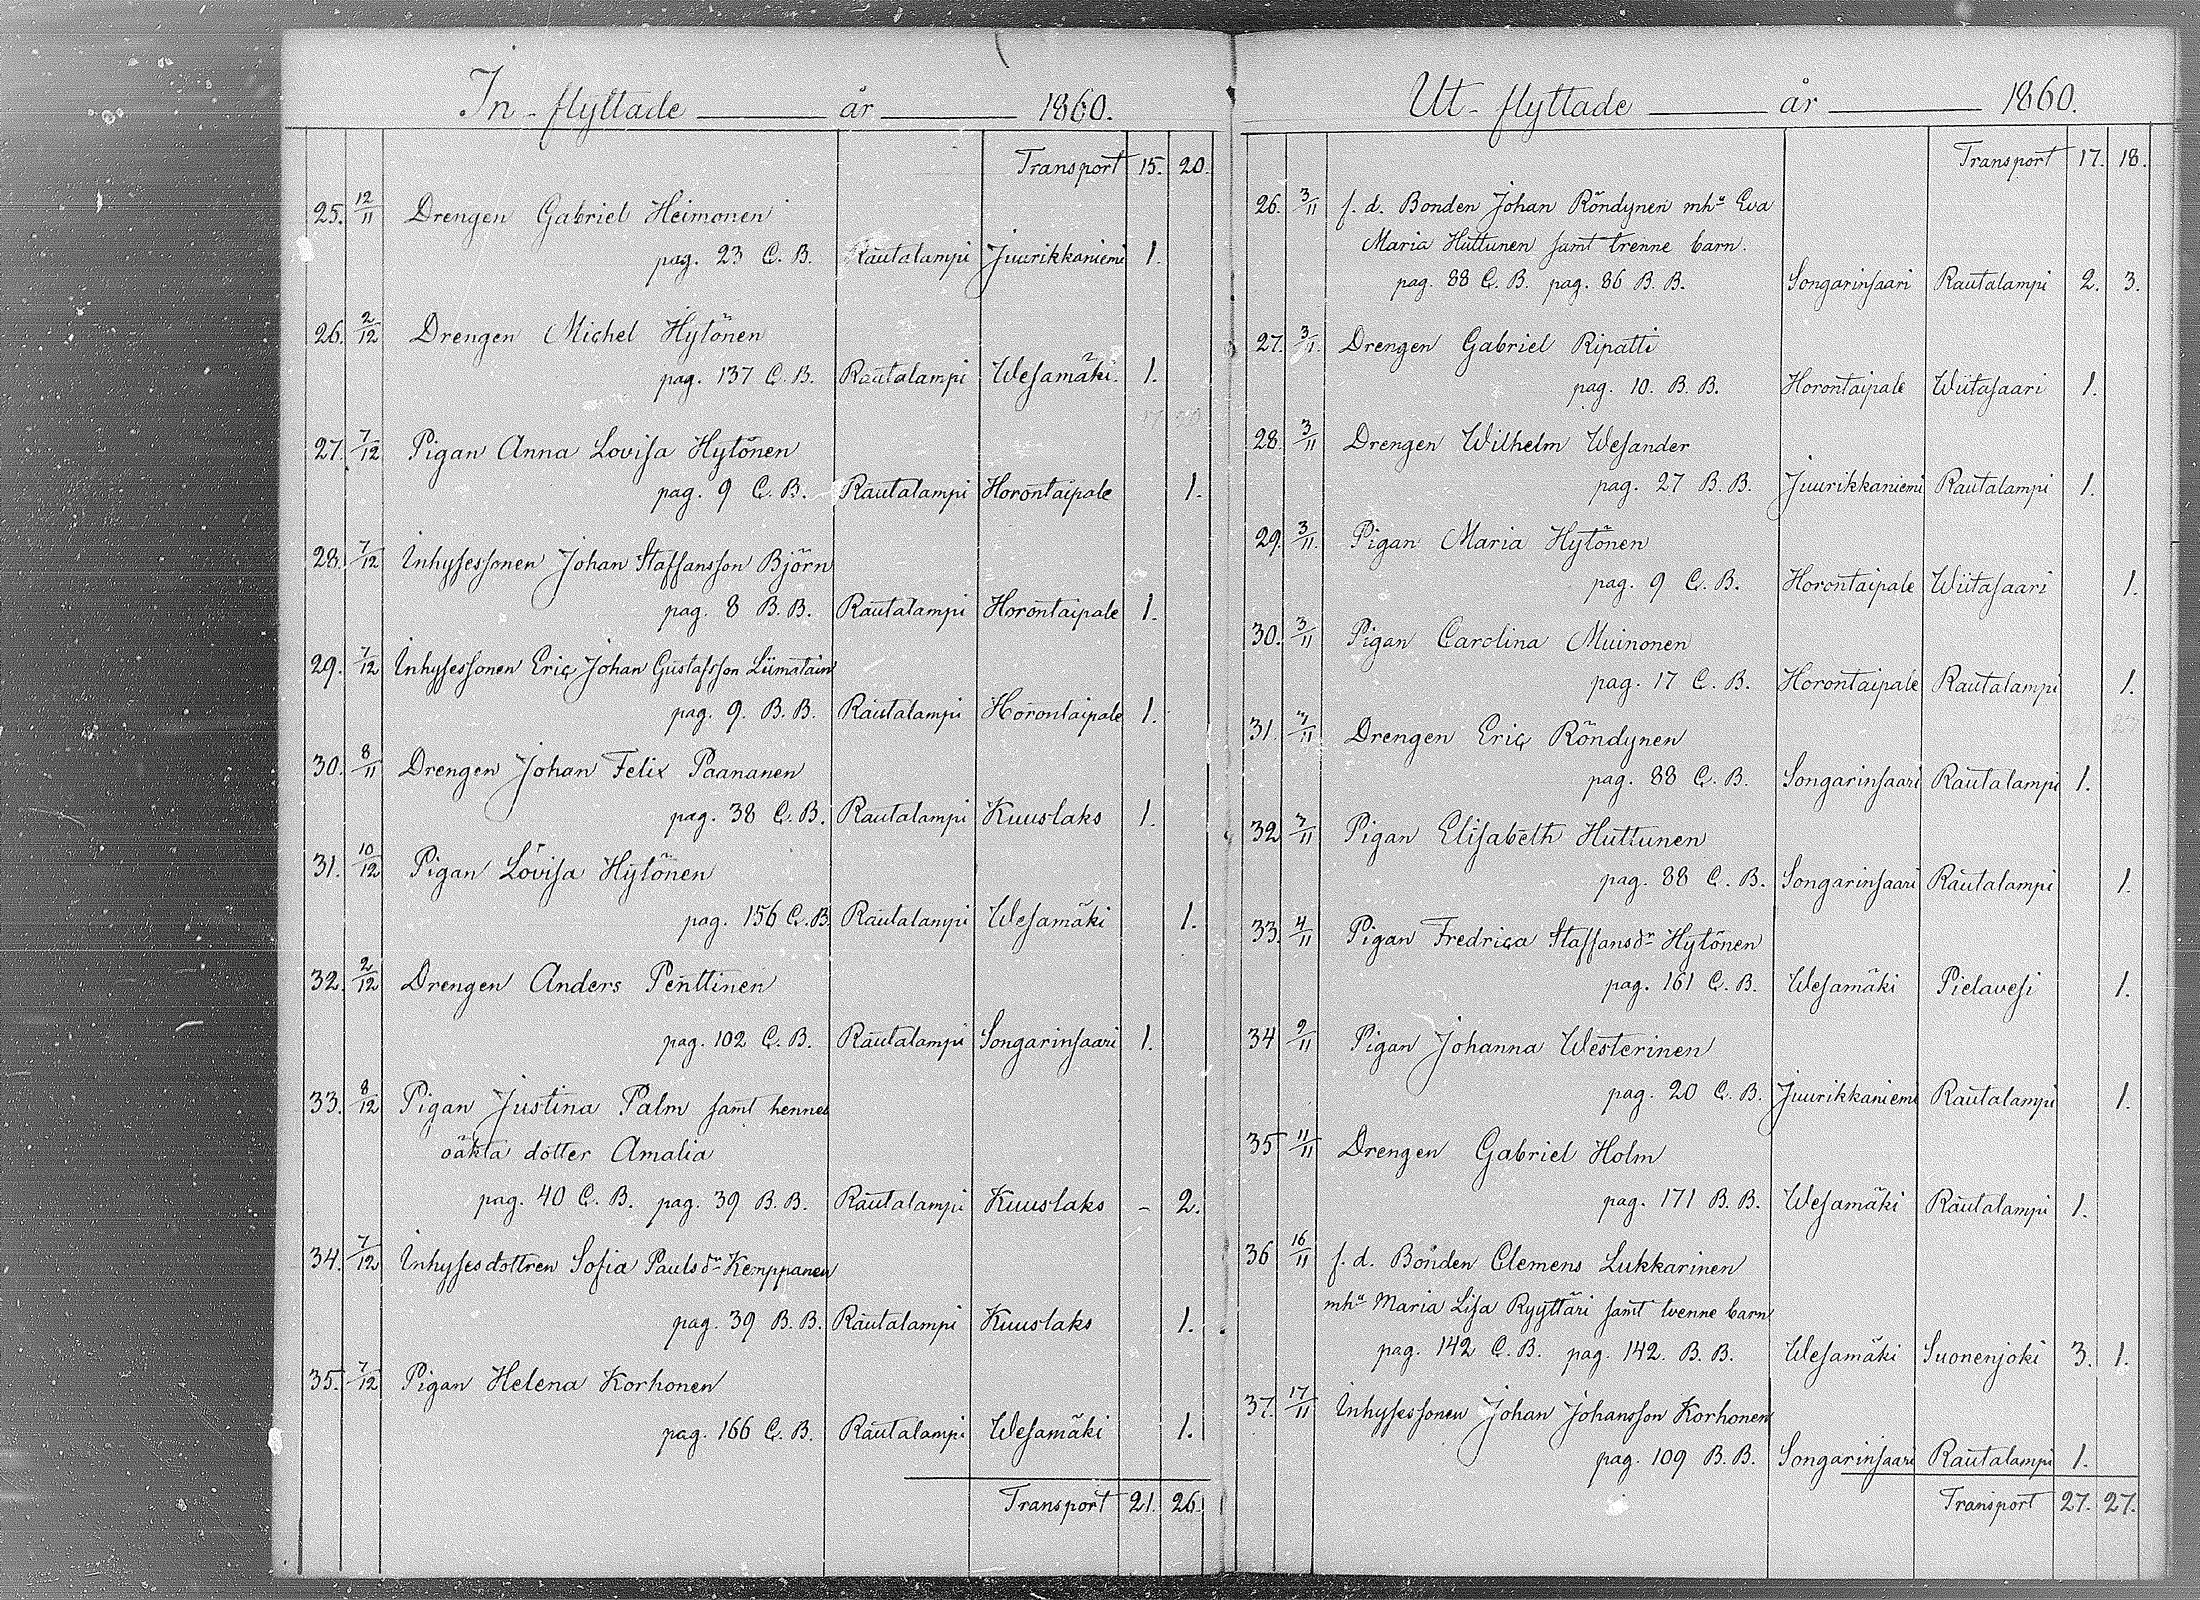 In-flyttade år 1860.
Transport 15. 20.
25. 12/11 Drengen Gabriel Heimonen
pag. 23 C. B. Rautalampi Juurikkaniemi 1.
26. 2/12 Drengen Michel Hytönen
pag. 137 C. B. Rautalampi Wesamäki. 1.
27. 7/12 Pigan Anna Lovisa Hytönen
pag. 9 C. B. Rautalampi Horontaipale 1.
28. 7/12 Inhysessonen Johan Staffansson Björn
pag. 8 B. B. Rautalampi Horontaipale 1.
29. 7/12 Inhysessonen Eric Johan Gustafsson Liimatain
pag. 9. B. B. Rautalampi Horontaipale 1.
30. 8/11 Drengen Johan Felix Paananen
pag. 38 C. B. Rautalampi Kuuslaks 1.
31. 10/12 Pigan Lovisa Hytönen
pag. 156 C. B. Rautalampi Wesamäki 1.
32. 2/12 Drengen Anders Penttinen
pag. 102 C. B. Rautalampi Songarinsaari 1.
33. 8/12 Pigan Justina Palm samt hennes
oäkta dotter Amalia
pag. 40 C. B. pag. 39 B. B. Rautalampi Kuuslaks - 2.
34. 7/12 Inhysesdottren Sofia Paulsdr Kemppanen
pag. 39 B. B. Rautalampi Kuuslaks 1.
35. 7/12 Pigan Helena Korhonen
pag. 166 C. B. Rautalampi Wesamäki 1.
Transport 21. 26.
Ut-flyttade år 1860.
Transport 17. 18.
26. 3/11 f. d. Bonden Johan Röndynen mha Eva
Maria Huttunen samt trenne barn.
pag. 88 C. B. pag. 86 B. B. Songarinsaari Rautalampi 2. 3.
27. 3/11. Drengen Gabriel Ripatti
pag. 10. B. B. Horontaipale Wiitasaari 1.
28. 3/11 Drengen Wilhelm Wesander
pag. 27 B. B. Juurikkaniemi Rautalampi 1.
29. 3/11. Pigan Maria Hytönen
pag. 9 C. B. Horontaipale Wiitasaari 1.
30. 3/11 Pigan Carolina Muinonen
pag. 17 C. B. Horontaipale Rautalampi 1.
31. 3/11 Drengen Eric Röndynen
pag. 88 C. B. Songarinsaari Rautalampi 1.
32 3/11 Pigan Elisabeth Huttunen
pag. 88 C. B. Songarinsaari Rautalampi 1.
33. 4/11 Pigan Fredrica Staffansdr Hytönen
pag. 161 C. B. Wesamäki Pielavesi 1.
34 9/11 Pigan Johanna Westerinen
pag. 20 C. B. Juurikkaniemi Rautalampi 1.
35 11/11 Drengen Gabriel Holm
pag. 171 B. B. Wesamäki Rautalampi 1.
36 16/11 f. d. Bonden Clemens Lukkarinen
mha Maria Lisa Ryyttäri samt tvenne barn
pag. 142 C. B. pag. 142. B. B. Wesamäki Suonenjoki 3. 1.
37. 17/11 Inhysessonen Johan Johansson Korhonen
pag. 109 B. B. Songarinsaari Rautalampi 1.
Transport 27. 27.